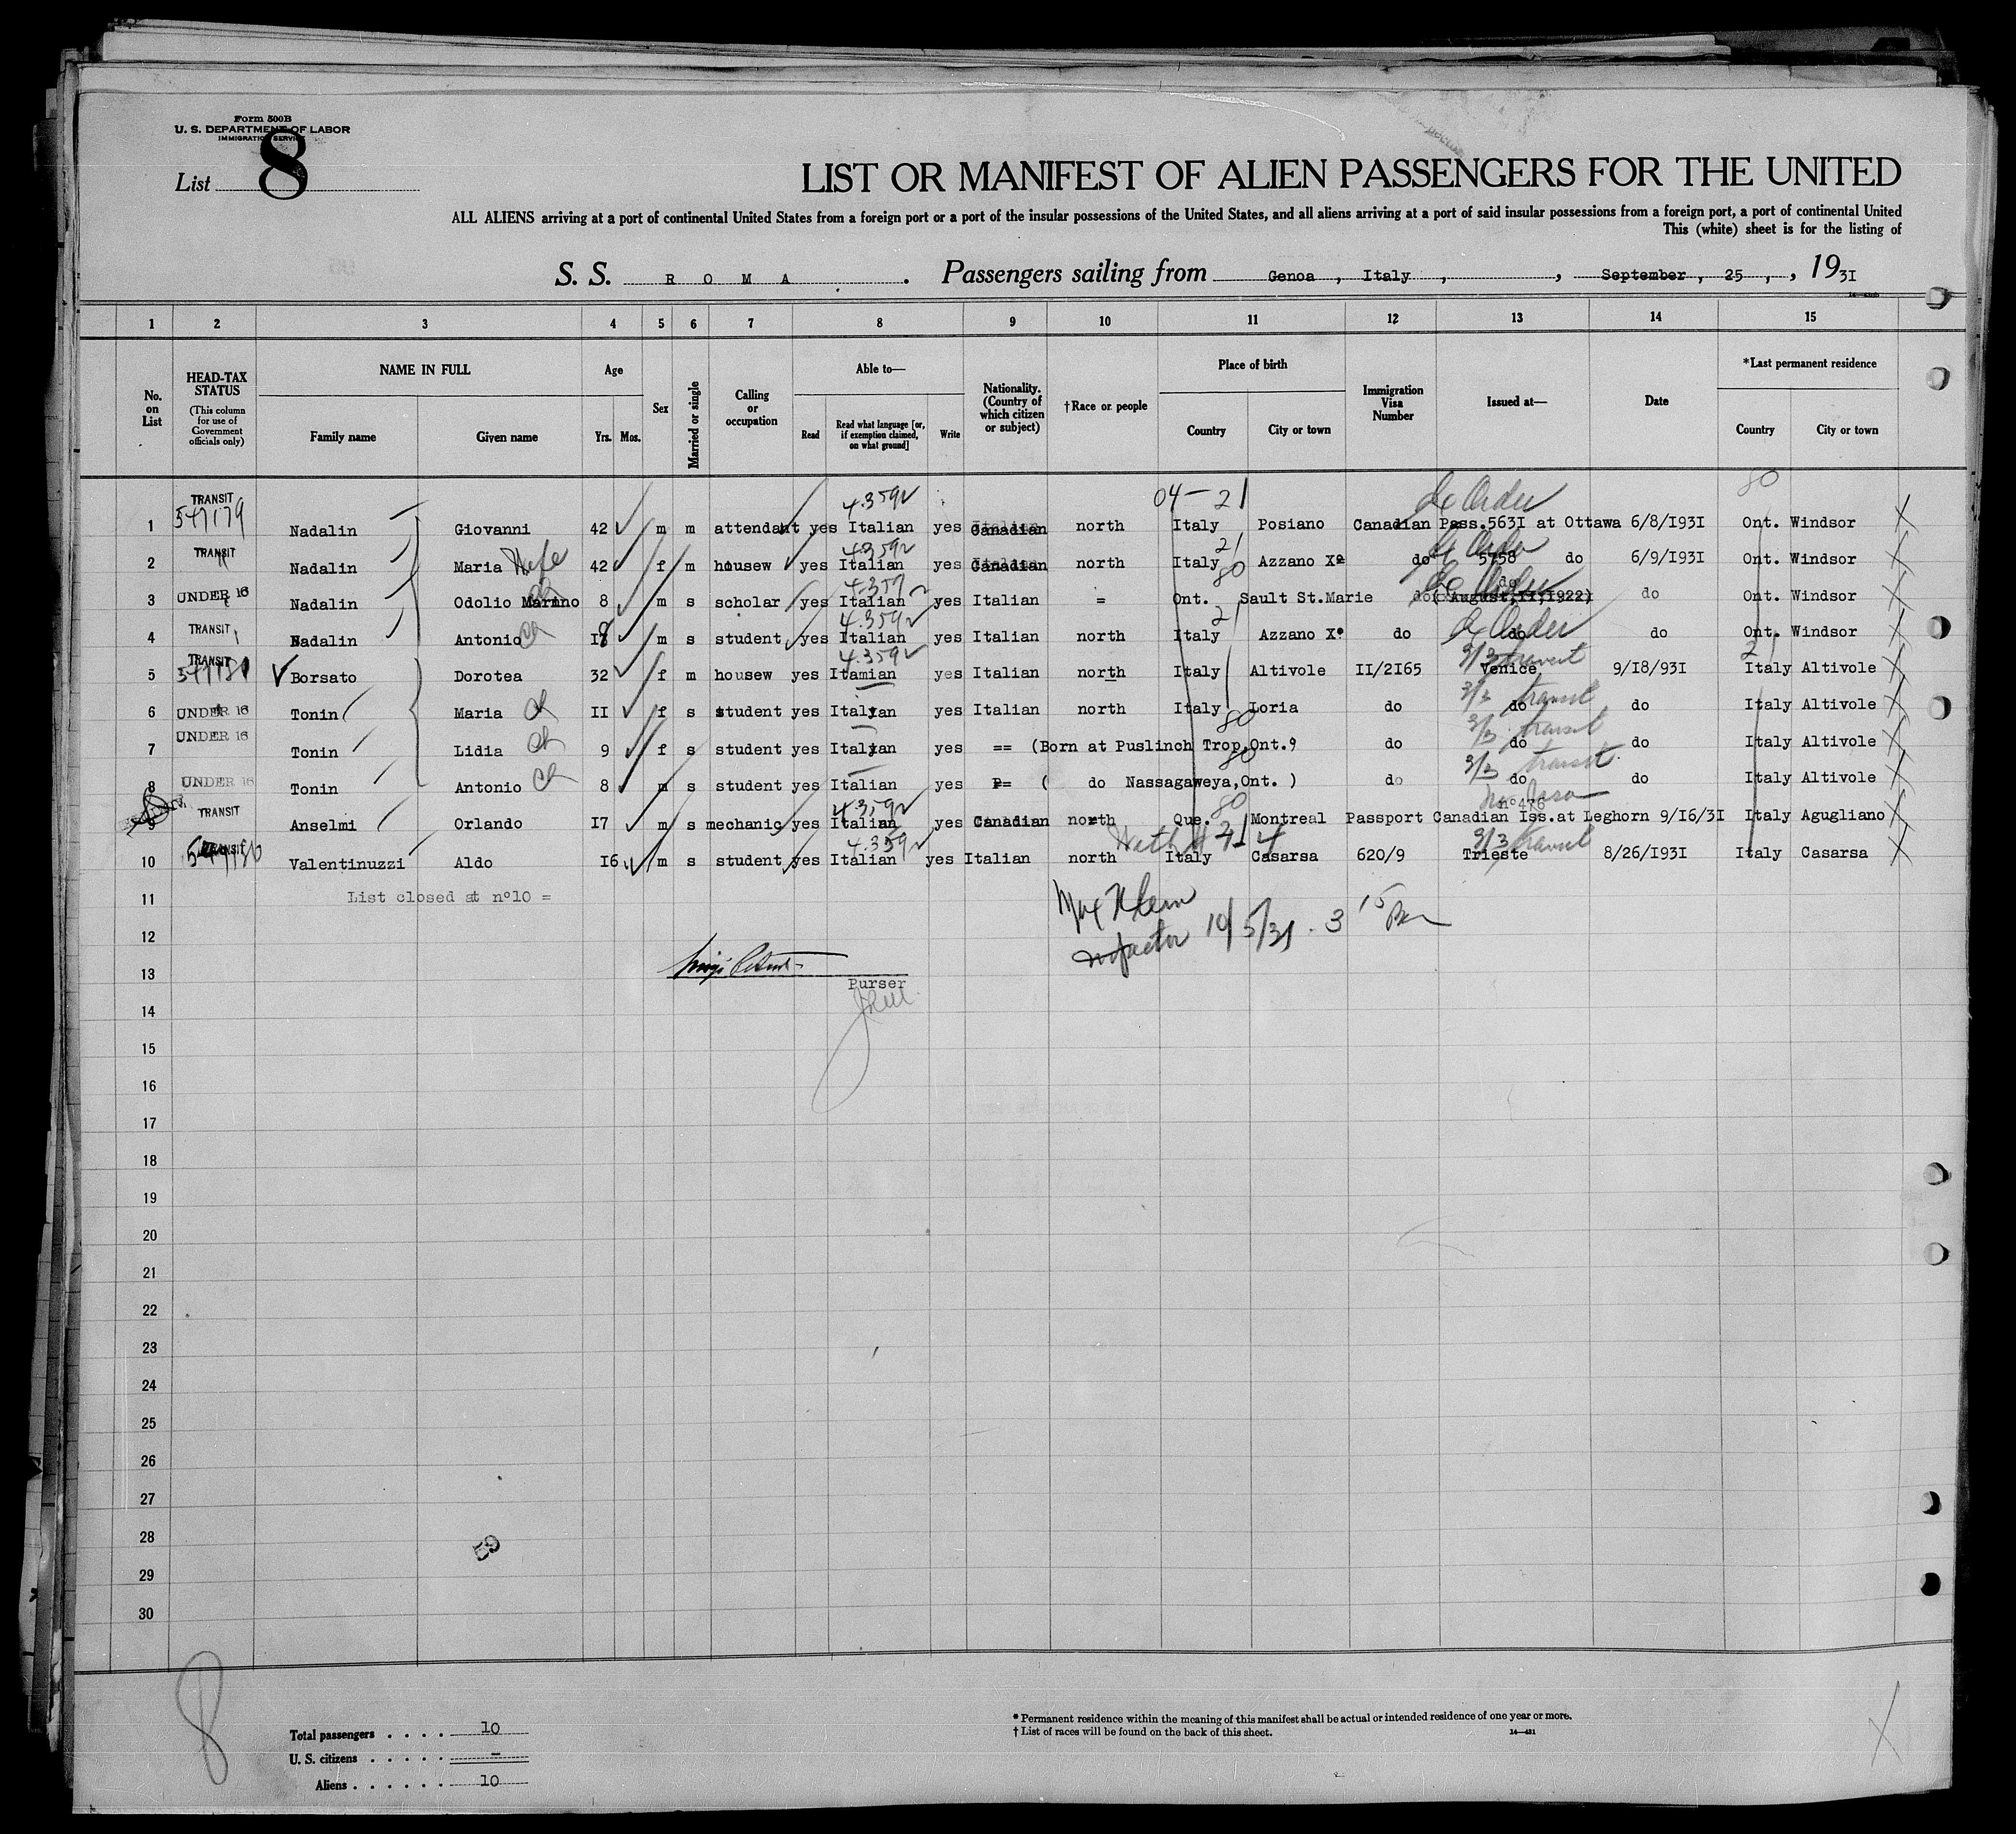 Form 500B
U. S. DEPARTMENT OF LABOR
IMMIGRATION SERVICE
List 8
LIST OR MANIFEST OF ALIEN PASSENGERS FOR THE UNITED
ALL ALIENS arriving at a port of continental United States from a foreign port or a port of the insular possessions of the United States, and all aliens arriving at a port of said insular possessions from a foreign port, a port of continental United
This (white) sheet is for the listing of
S. S. R O M A . Passengers sailing from Genoa , Italy , , September , 25 , , 1931
1 2 3 4 5 6 7 8 9 10 11 12 13 14 15
No. on List
HEAD-TAX STATUS
(This column for use of Government officials only)
NAME IN FULL
Family name Given name
Age
Yrs. Mos.
Sex
Married or single
Calling or occupation
Able to—
Read Read what language [or, if exemption claimed, on what ground] Write
Nationality. (Country of which citizen or subject)
†Race or people
Place of birth
Country City or town
Immigration Visa Number
Issued at—
Date
*Last permanent residence
Country City or town
4.359 04-21 80
1 TRANSIT 547179 Nadalin Giovanni 42 m m attendant yes Italian yes Canadian north Italy Posiano Canadian Pass.5631 at Ottawa 6/8/1931 Ont. Windsor
4.359 21
2 TRANSIT Nadalin Maria Wife 42 f m housew yes Italian yes Canadian north Italy Azzano Xº do 5758 do 6/9/1931 Ont. Windsor
4.359 80
3 UNDER 16 Nadalin Odolio Marino Ch 8 m s scholar yes Italian yes Italian = Ont. Sault St.Marie do (August,II,1922) do do Ont. Windsor
4.359 21
4 TRANSIT Nadalin Antonio Ch m s student yes Italian yes Italian north Italy Azzano Xº do do do Ont. Windsor
4.359 3/3 transit 21
5 TRANSIT Borsato Dorotea 32 f m housew yes Itamian yes Italian north Italy Altivole II/2I65 Venice 9/18/931 Italy Altivole
3/3 transit
6 UNDER 16 Tonin Maria Ch II f s student yes Italian yes Italian north Italy Loria do do do Italy Altivole
80 3/3 transit
7 UNDER 16 Tonin Lidia Ch 9 f s student yes Italian yes == (Born at Puslinch Trop,Ont.) do do do Italy Altivole
80 3/3 transit
8 UNDER 16 Tonin Antonio Ch 8 m s student yes Italian yes == ( do Nassagaweya,Ont. ) do do do Italy Altivole
4.359 80 nº476
9 TRANSIT Anselmi Orlando 17 m s mechanic yes Italian yes Canadian north Que. Montreal Passport Canadian Iss.at Leghorn 9/16/31 Italy Agugliano
4.359 21 3/3 transit
10 TRANSIT Valentinuzzi Aldo 16 m s student yes Italian yes Italian north Italy Casarsa 620/9 Trieste 8/26/1931 Italy Casarsa
11 List closed at nº10 =
12 10/5/31 . 3 15
13
Purser
14
15
16
17
18
19
20
21
22
23
24
25
26
27
28 59
29
30
8
Total passengers . . . . 10
U. S. citizens . . . . . —
Aliens . . . . . . 10
* Permanent residence within the meaning of this manifest shall be actual or intended residence of one year or more.
† List of races will be found on the back of this sheet. 14—431